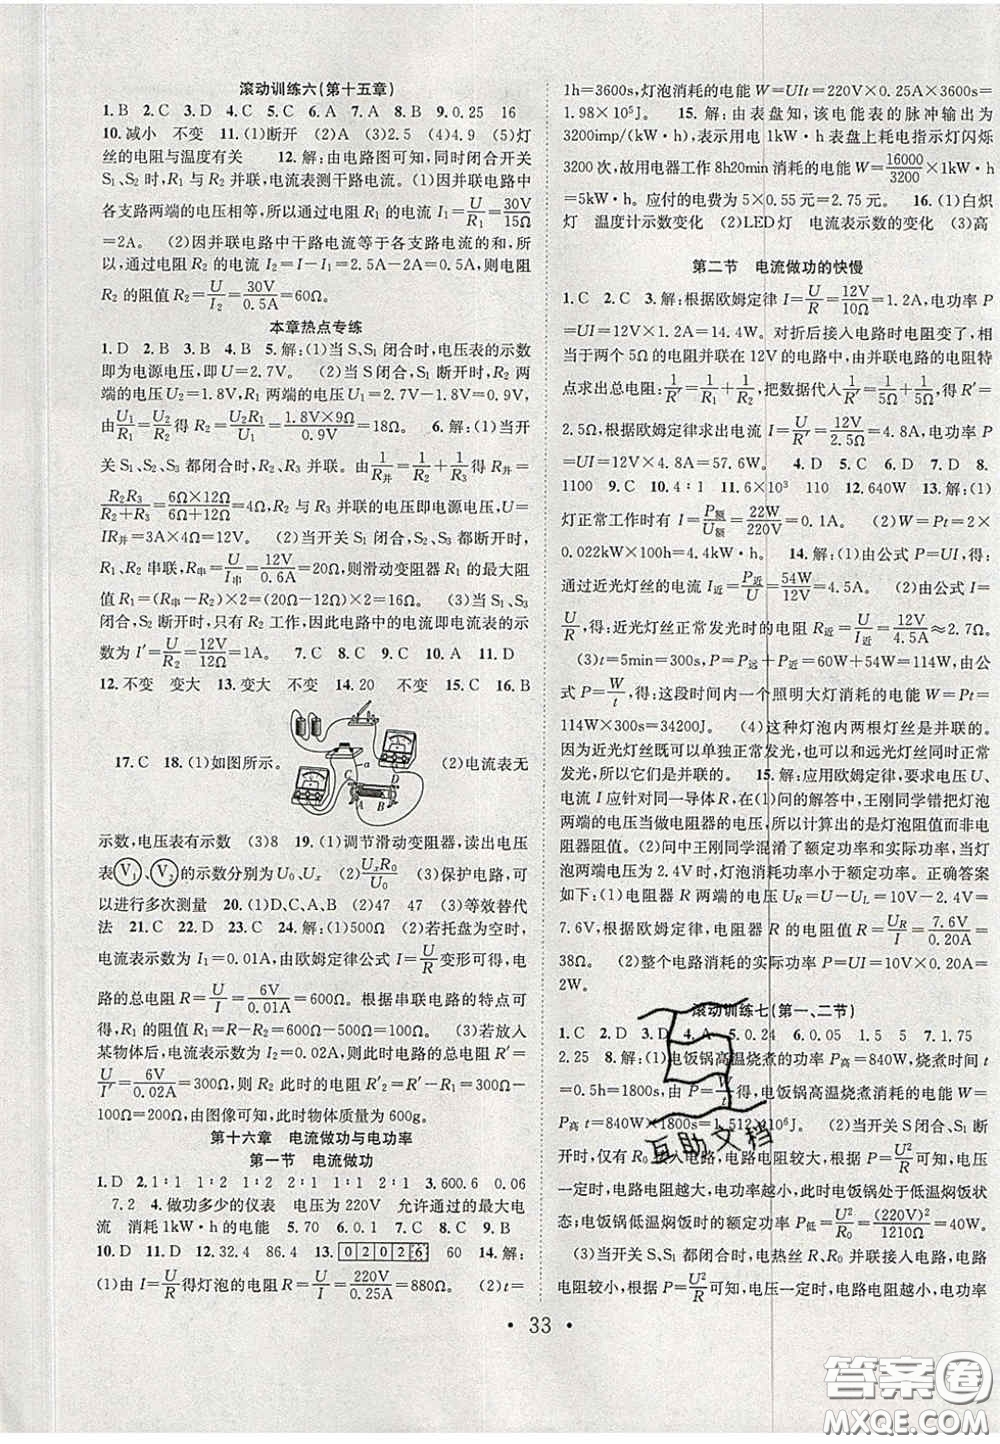 滚动训练六(第十五章)
1.B 2.C 3.D 4.C 5.C 6.A 7.A 8.D 9.0.25 16
10.减小 不变 11.(1)断开 (2)A (3)2.5 (4)4.9 (5)灯
丝的电阻与温度有关 12.解:由电路图可知,同时闭合开关
S₁、S₂时,R₁与R₂并联,电流表测干路电流。(1)因并联电路中
各支路两端的电压相等,所以通过电阻R₁的电流I₁=U/R₁=30V/15Ω
=2A。 (2)因并联电路中干路电流等于各支路电流的和,所
以,通过电阻R₂的电流I₂=I-I₁=2.5A-2A=0.5A,则电阻R₂
的阻值R₂=U/I₂=30V/0.5A=60Ω。
本章热点专练
1.D 2.B 3.B 4.B 5.解:(1)当S、S₁闭合时,电压表的示数
即为电源电压,即U=2.7V。(2)当S闭合,S₁断开时,R₂两
端的电压U₂=1.8V,R₁两端的电压U₁=2.7V-1.8V=0.9V,
由U₁/R₁=U₂/R₂得R₂=U₂R₁/U₁=1.8V×9Ω/0.9V=18Ω。 6.解:(1)当开
关S₁、S₂、S₃都闭合时,R₂、R₃并联。由1/R并=1/R₂+1/R₃得R并=
R₂R₃/R₂+R₃=6Ω×12Ω/6Ω+12Ω=4Ω,R₂与R₃并联的电压即电源电压,U=
IR并=3A×4Ω=12V。 (2)当开关S₁、S₂、S₃都断开时,R₁、
R₂串联,R串=U/I串=12V/0.6A=20Ω,则滑动变阻器R₁的最大阻
值R₁=(R串-R₂)×2=(20Ω-12Ω)×2=16Ω。 (3)当S₁、S₃
闭合,S₂断开时,只有R₂工作,因此电路中的电流即电流表的示
数为I′=U/R₂=12V/12Ω=1A。 7.C 8.C 9.C 10.A 11.D
12.不变 变大 13.变大 不变 14.20 不变 15.C 16.B
17.C 18.(1)如图所示。 (2)电流表无
示数,电压表有示数 (3)8 19.(1)调节滑动变阻器,读出电压
表V₁、V₂的示数分别为U₀、Uₓ (2)UₓR₀/U₀ (3)保护电路,可
以进行多次测量 20.(1)D、C、A、B (2)47 47 (3)等效替代
法 21.C 22.D 23.C 24.解:(1)串联 (2)若托盘为空时,
电流表示数为I₁=0.01A,由欧姆定律公式I=U/R变形可得,
电路的总电阻R=U/I=6V/0.01A=600Ω。根据串联电路的特点可
得,R₂的阻值R₂=R-R₁=600Ω-100Ω=500Ω。 (3)若放入
某物体后,电流表示数为I=0.02A,此时电路的总电阻R″=
U/I′=6V/0.02A=300Ω,则R₂此时的电阻R′₂=R″-R₁=300Ω-
100Ω=200Ω,由图像可知,此时物体质量为600g。
第十六章 电流做功与电功率
第一节 电流做功
1.D 2.1∶1 1∶2 1∶2 1∶1 2∶1 2∶1 3.600.6 0.06
7.2 4.做功多少的仪表 电压为220V 允许通过的最大电
流 消耗1kW·h的电能 5.70 6.0.1 7.C 8.C 9.B
10.D 11.D 12.32.4 86.4 13.02026 60 14.解:
(1)由I=U/R得灯泡的电阻R=U/I=220V/0.25A=880Ω。 (2)t=
1h=3600s,灯泡消耗的电能W=UIt=220V×0.25A×3600s=
1.98×10⁵J。 15.解:由表盘知,该电能表的脉冲输出为
3200imp/(kW·h),表示用电1kW·h表盘上耗电指示灯闪烁
3200次,故用电器工作8h20min消耗的电能W=16000/3200×1kW·h
=5kW·h。应付的电费为5×0.55元=2.75元。 16.(1)白炽
灯 温度计示数变化 (2)LED灯 电流表示数的变化 (3)高
第二节 电流做功的快慢
1.C 2.C 3.解:根据欧姆定律I=U/R=12V/10Ω=1.2A,电功率P
=UI=12V×1.2A=14.4W。对折后接入电路时电阻变了,相
当于两个5Ω的电阻并联在12V的电路中,由并联电路的电阻特
点求出总电阻:1/R′=1/R₁+1/R₂,把数据代入1/R′=1/5Ω+1/5Ω,得R′=
2.5Ω,根据欧姆定律求出电流I=U/R′=12V/2.5Ω=4.8A,电功率
P=UI=12V×4.8A=57.6W。 4.D 5.C 6.D 7.D 8.
1100 9.C 10.4∶1 11.6×10³ 110 12.640W 13.解:(1)
灯正常工作时有I=P额/U额=22W/220V=0.1A。 (2)W=Pt=2×
0.022kW×100h=4.4kW·h。 14.解:(1)由公式P=UI,得:
通过近光灯丝的电流I近=P近/U=54W/12V=4.5A。 (2)由公式I=
U/R,得:近光灯丝正常发光时的电阻R近=U/I近=12V/4.5A≈2.7Ω。
(3)t=5min=300s,P=P远+P近=60W+54W=114W,由公
式P=W/t,得:这段时间内一个照明大灯消耗的电能W=Pt=
114W×300s=34200J。 (4)这种灯泡内两根灯丝是并联的。
因为近光灯丝既可以单独正常发光,也可以和远光灯丝同时正常
发光,所以它们是并联的。 15.解:应用欧姆定律,要求电压U、
电流I应针对同一导体R。(1)问的解答中,王刚同学错把灯泡
两端的电压当做电阻器的电压,所以计算出的是灯泡阻值而非电
阻器阻值。(2)问中王刚同学混淆了额定功率和实际功率,当灯
泡两端电压为2.4V时,灯泡实际功率小于额定功率。正确答案
如下:(1)电阻器R两端的电压U_R=U-U_L=10V-2.4V=
7.6V,根据欧姆定律,电阻器R的电阻值R=U_R/I=7.6V/0.20A=
38Ω。 (2)整个电路消耗的实际功率P=UI=10V×0.20A=
2W。
滚动训练七(第一、二节)
1.C 2.D 3.D 4.A 5.0.24 6.0.05 1.5 5 7.1.75
2.25 8.解:(1)电饭锅高温烧煮的功率P高=840W,烧煮时间t
=0.5h=1800s,由P=W/t得,电饭锅高温烧煮消耗的电能W=
P高t=840W×1800s=1.512×10⁶J。 (2)当开关S闭合、S₁断
开时,仅有R₀接入电路,电路电阻较大,根据公式P=U²/R可知,电压
一定时,电路电阻越大,电功率越小,此时电饭锅处于低温焖饭状
态;电饭锅低温焖饭时的额定功率P低=U²/R₀=(220V)²/1210Ω=40W。
(3)当开关S、S₁都闭合时,电热丝R、R₀并联接入电路,电路
电阻较小,根据公式P=U²/R可知,电压一定时,电路电阻越小,电功率
· 33 ·
互助文档
答案圈
MXQE.COM